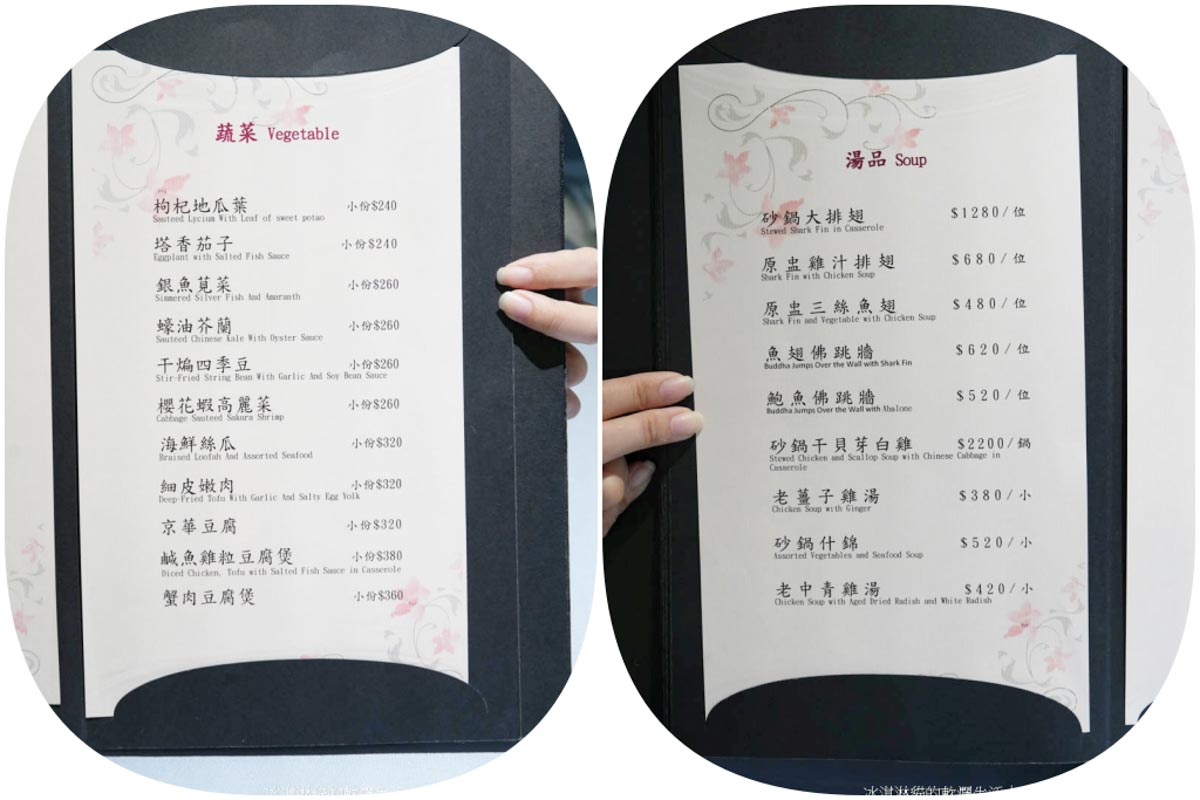 蔬菜 Vegetable
枸杞地瓜葉 小份$240
Sauteed Lycium With Leaf of sweet potao
塔香茄子 小份$240
Eggplant with Salted Fish Sauce
銀魚莧菜 小份$260
Simmered Silver Fish And Amaranth
蠔油芥蘭 小份$260
Sauteed Chinese Kale With Oyster Sauce
干煸四季豆 小份$260
Stir-Fried String Bean With Garlic And Soy Bean Sauce
櫻花蝦高麗菜 小份$260
Cabbage Sauteed Sakura Shrimp
海鮮絲瓜 小份$320
Braised Loofah And Assorted Seafood
細皮嫩肉 小份$320
Deep-Fried Tofu With Garlic And Salty Egg Yolk
京華豆腐 小份$320
鹹魚雞粒豆腐煲 小份$380
Diced Chicken, Tofu with Salted Fish Sauce in Casserole
蟹肉豆腐煲 小份$360
湯品 Soup
砂鍋大排翅 $1280/位
Stewed Shark Fin in Casserole
原盅雞汁排翅 $680/位
Shark Fin with Chicken Soup
原盅三絲魚翅 $480/位
Shark Fin and Vegetable with Chicken Soup
魚翅佛跳牆 $620/位
Buddha Jumps Over the Wall with Shark Fin
鮑魚佛跳牆 $520/位
Buddha Jumps Over the Wall with Abalone
砂鍋干貝芽白雞 $2200/鍋
Stewed Chicken and Scallop Soup with Chinese Cabbage in
Casserole
老薑子雞湯 $380/小
Chicken Soup with Ginger
砂鍋什錦 $520/小
Assorted Vegetables and Seafood Soup
老中青雞湯 $420/小
Chicken Soup with Aged Dried Radish and White Radish